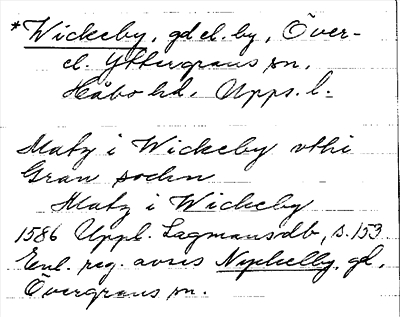 *Wickeby, gd el. by, Över-
el. Yttergrans sn,
Håbo hd, Upps. l.
Matz i Wickeby vthi
Gran sochn
Matz i Wickeby
1586 Uppl. Lagmansdb, s. 153
Enl. reg. avses Nyckelby, gd,
Övergrans sn.